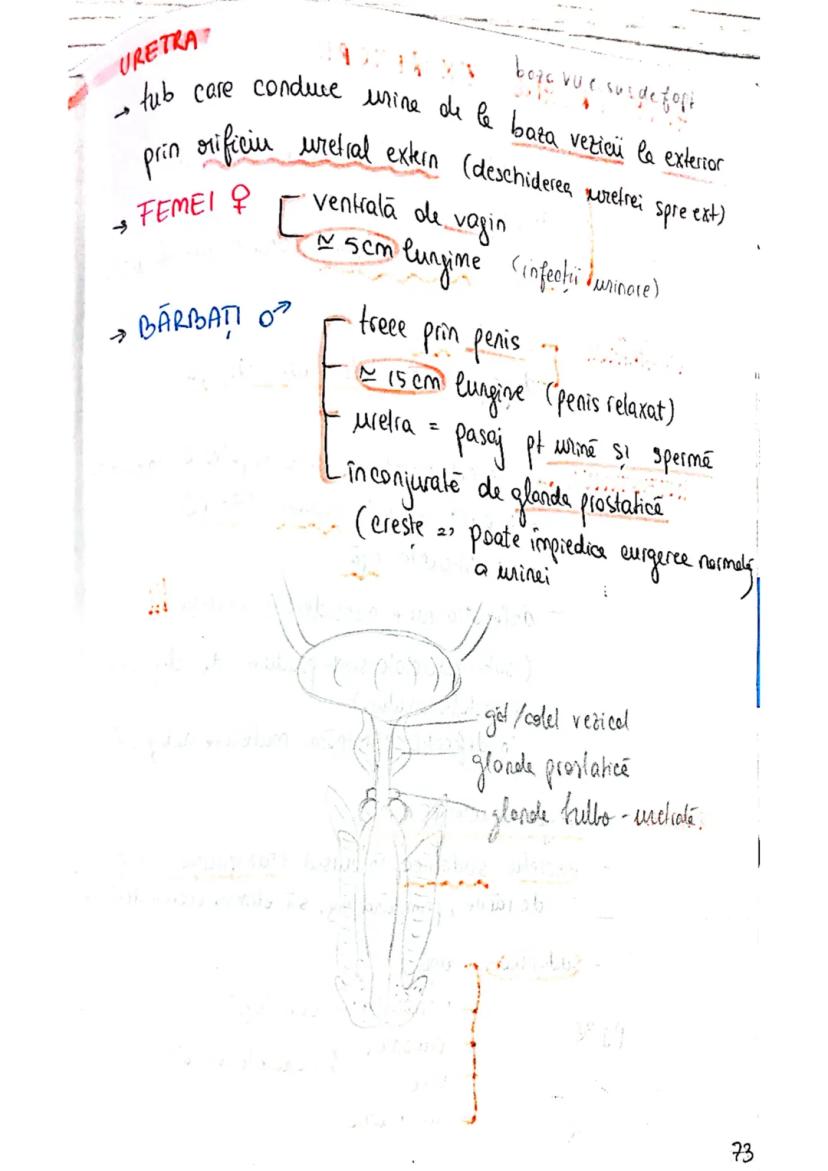 URETRA
→ tub care conduce urina de la baza vezicii la exterior
prin orificiu uretral extern (deschiderea uretrei spre ext)
→ FEMEI ♀
ventrală de vagin
≃ 5cm lungime (infecții urinare)
→ BĂRBAȚI ♂
trece prin penis
≃ 15cm lungime (penis relaxat)
uretra = pasaj pt urină și spermă
înconjurată de glanda prostatică
(crește => poate împiedica curgerea normală
a urinei
gât/colul vezical
glanda prostatică
glanda bulbo-uretrală.
73